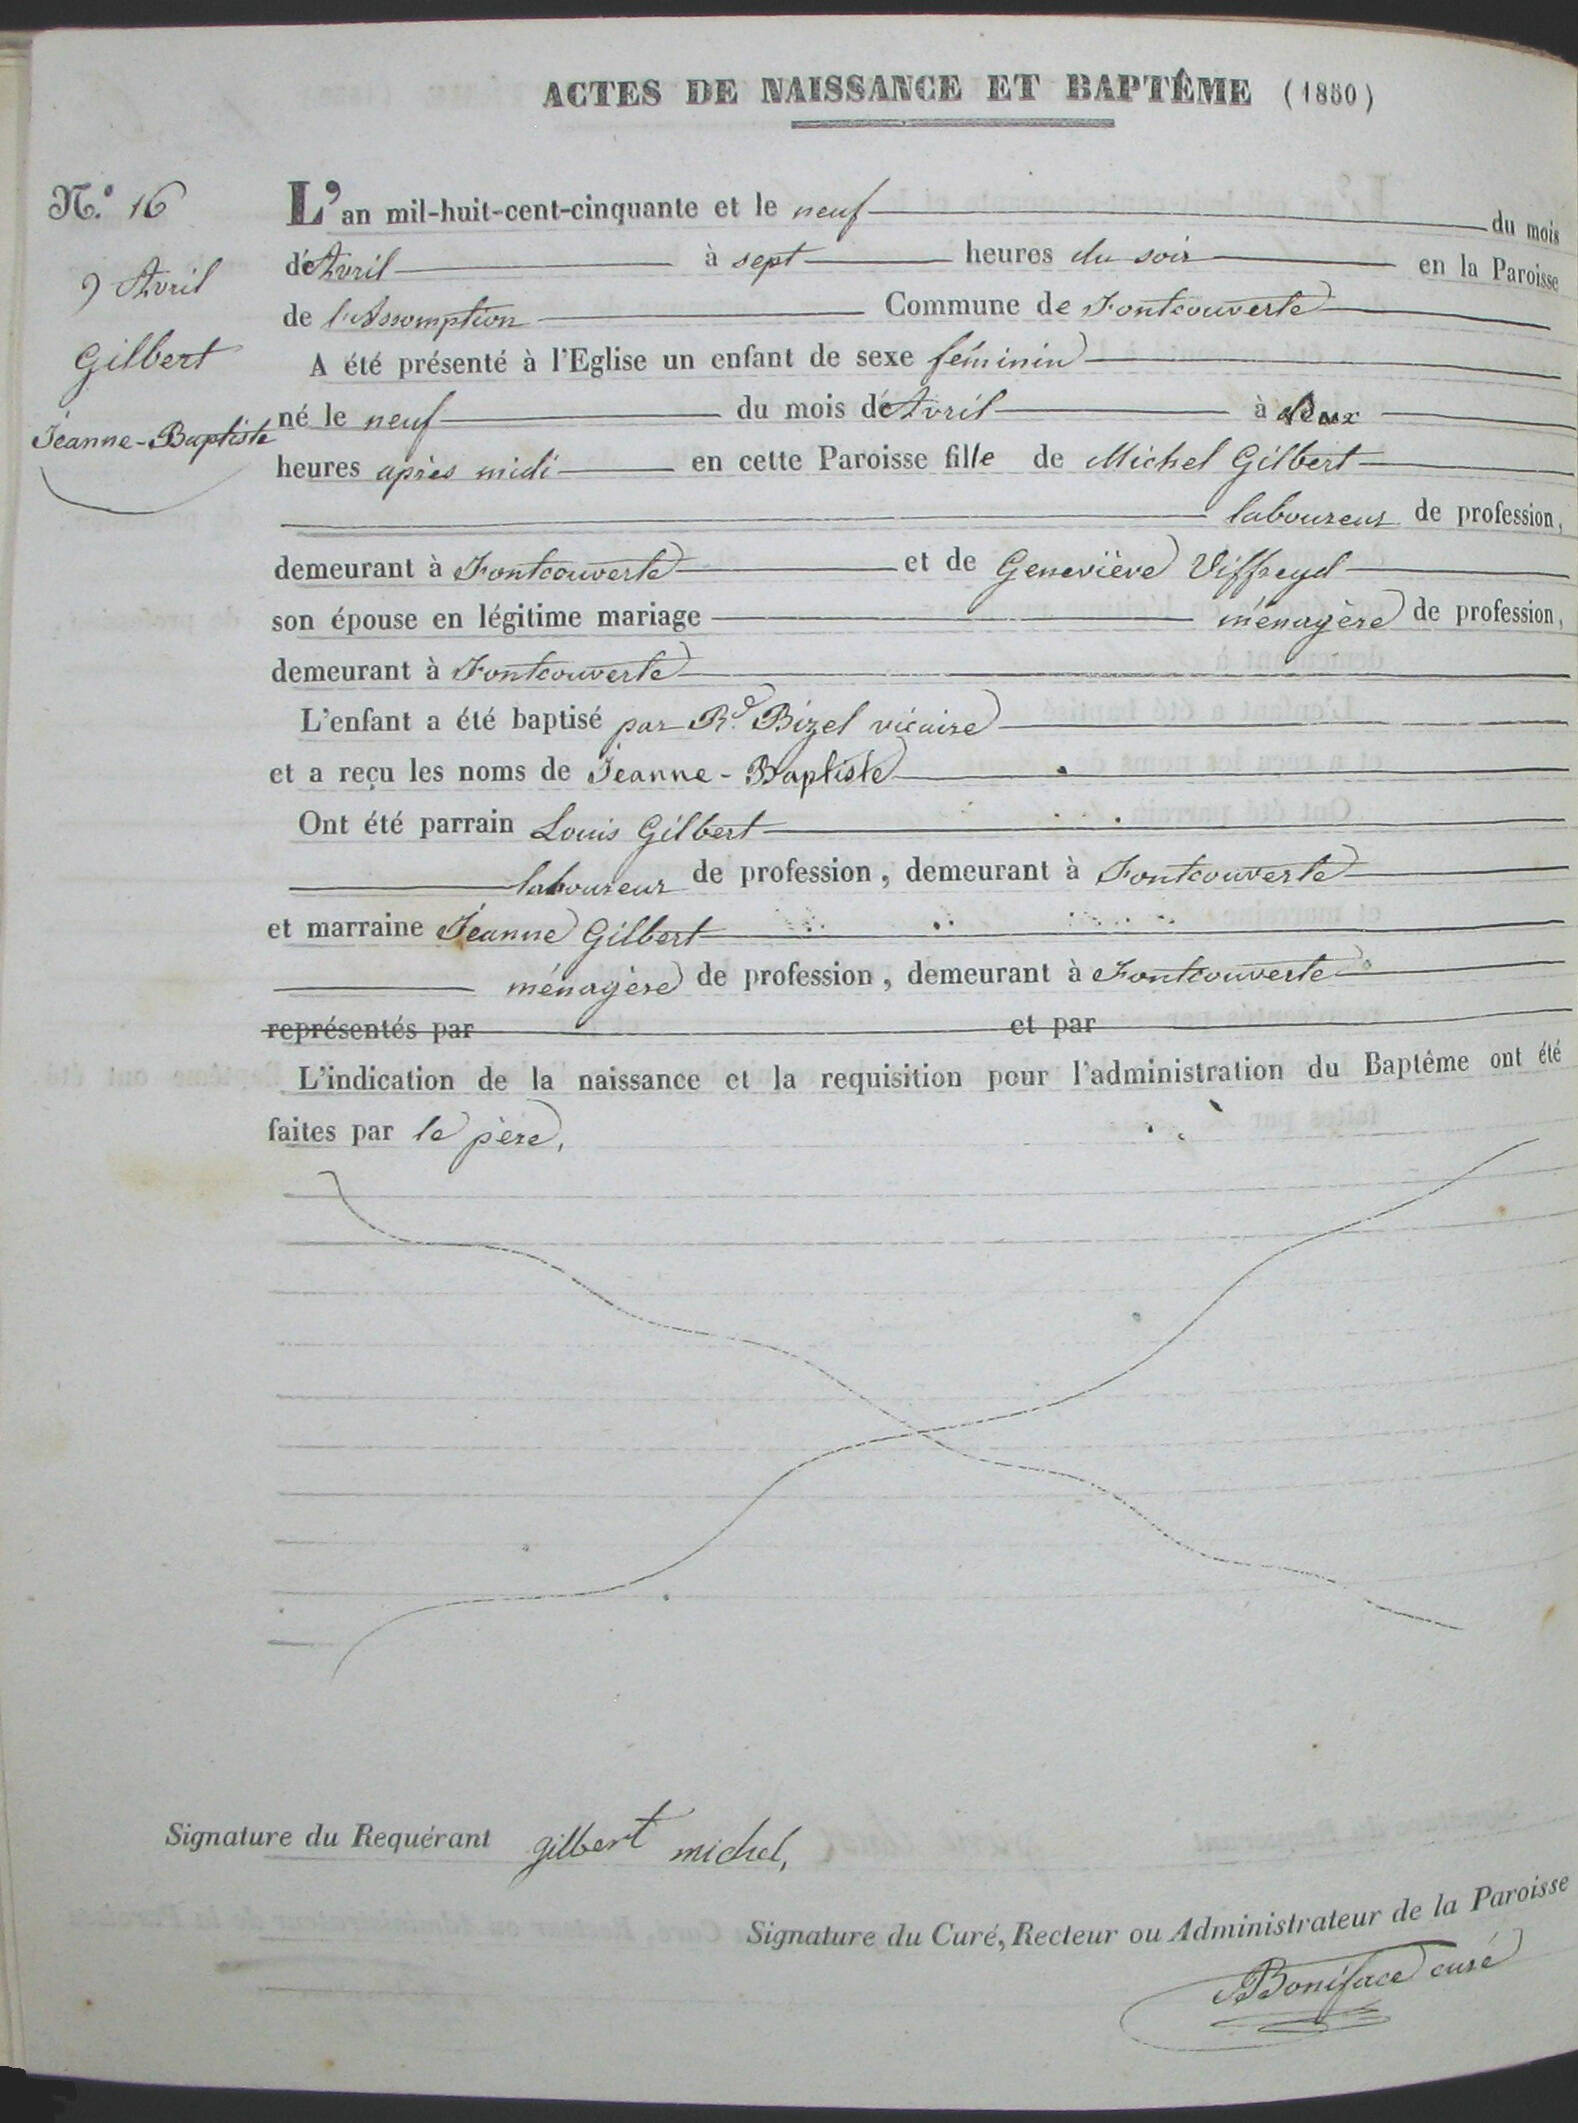 ACTES DE NAISSANCE ET BAPTÊME (1850)
N.° 16
9 Avril
Gilbert
Jeanne-Baptiste
L'an mil-huit-cent-cinquante et le neuf du mois
d'Avril à sept heures du soir en la Paroisse
de l'Assomption Commune de Fontcouverte
A été présenté à l'Eglise un enfant de sexe féminin
né le neuf du mois d'Avril à deux
heures après midi en cette Paroisse fille de Michel Gilbert
laboureur de profession,
demeurant à Fontcouverte et de Geneviève Viffreyd
son épouse en légitime mariage ménagère de profession,
demeurant à Fontcouverte
L'enfant a été baptisé par Rd. Bizel vicaire
et a reçu les noms de Jeanne-Baptiste
Ont été parrain Louis Gilbert
laboureur de profession, demeurant à Fontcouverte
et marraine Jeanne Gilbert
ménagère de profession, demeurant à Fontcouverte
représentés par et par
L'indication de la naissance et la requisition pour l'administration du Baptême ont été
faites par le père,
Signature du Requérant gilbert michel,
Signature du Curé, Recteur ou Administrateur de la Paroisse
Boniface curé